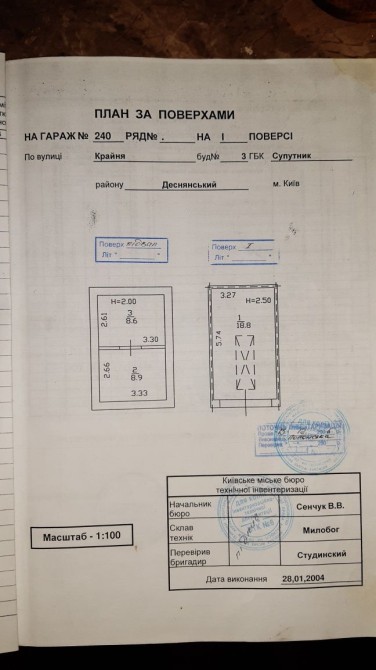 ПЛАН ЗА ПОВЕРХАМИ
НА ГАРАЖ № 240 РЯД№ . НА I ПОВЕРСІ
По вулиці Крайня буд№ 3 ГБК Супутник
району Деснянський м. Київ
Поверх підвал Поверх I
Літ " " Літ " "
H=2.00
2.61
3
8.6
3.30
2.66
2
8.9
3.33
3.27
H=2.50
1
18.8
5.74
Київське міське бюро
технічної інвентаризації
Начальник бюро Сенчук В.В.
Склав технік Милобог
Перевірив бригадир Студинский
Дата виконання 28,01,2004
Масштаб - 1:100